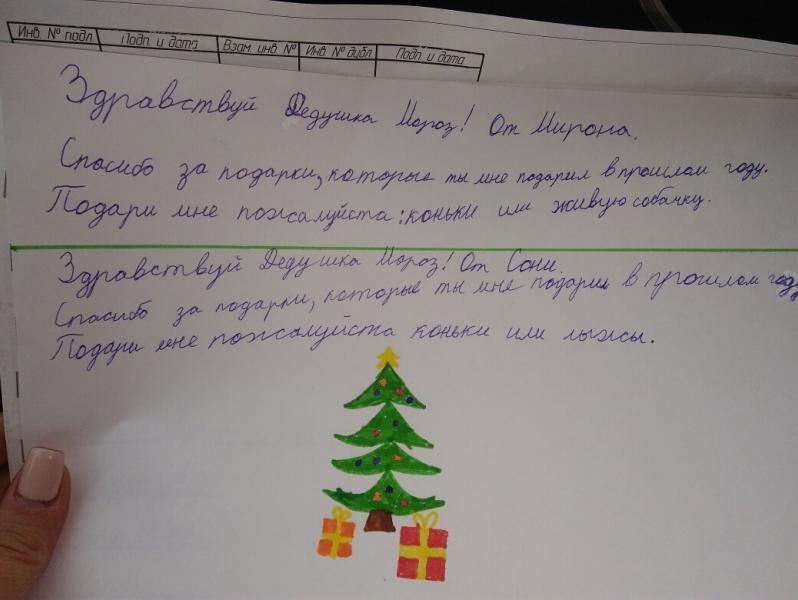 Инв. № подл. Подп. и дата Взам. инв. № Инв. № дубл. Подп. и дата
Здравствуй Дедушка Мороз! От Мирона.
Спасибо за подарки, которые ты мне подарил в прошлом году.
Подари мне пожалуйста: коньки или живую собачку.
Здравствуй Дедушка Мороз! От Сони.
Спасибо за подарки, которые ты мне подарил в прошлом году.
Подари мне пожалуйста коньки или лыжы.